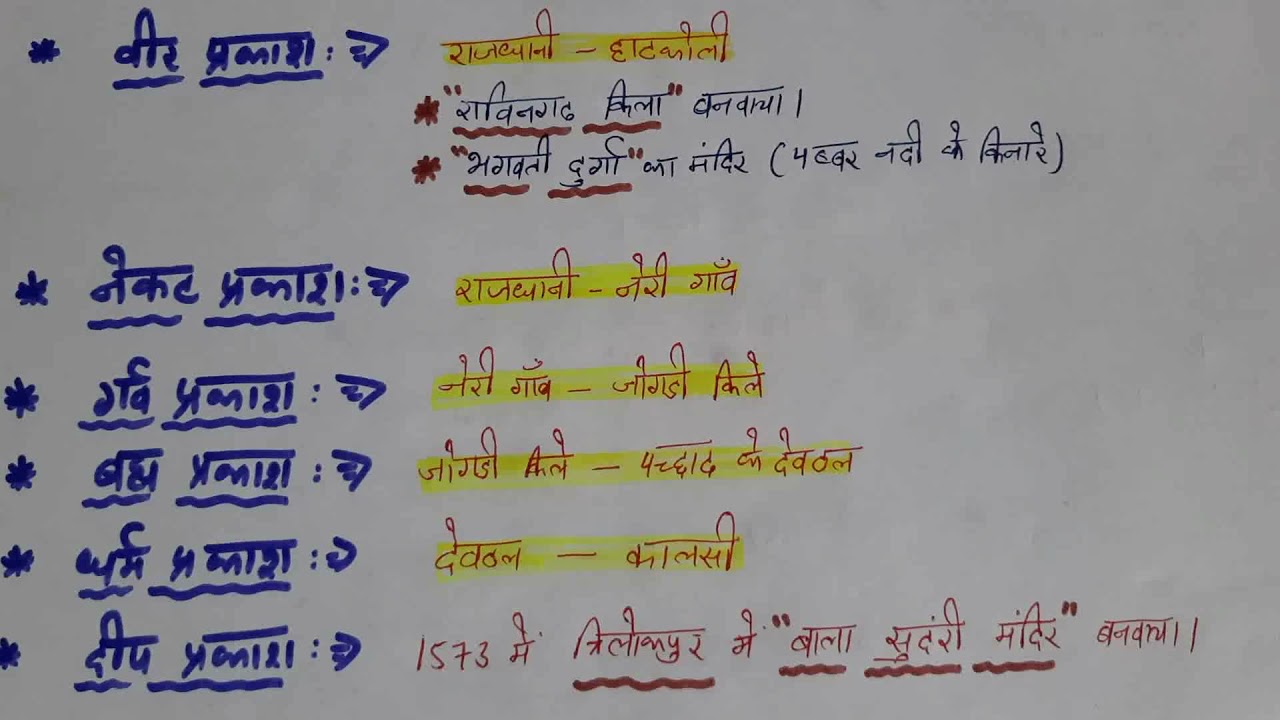 * वीर प्रकाश :⇒ राजधानी – हाटकोली
* "राविनगढ किला" बनवाया।
* "भगवती दुर्गा" का मंदिर (पब्बर नदी के किनारे)
* नेकट प्रकाश :⇒ राजधानी – नेरी गाँव
* गर्व प्रकाश :⇒ नेरी गाँव – जोगडी किले
* बह्म प्रकाश :⇒ जोगडी किले – पच्छाद के देवठल
* धर्म प्रकाश :⇒ देवठल – कालसी
* दीप प्रकाश :⇒ 1573 में त्रिलोकपुर में "बाला सुदंरी मंदिर" बनवाया।